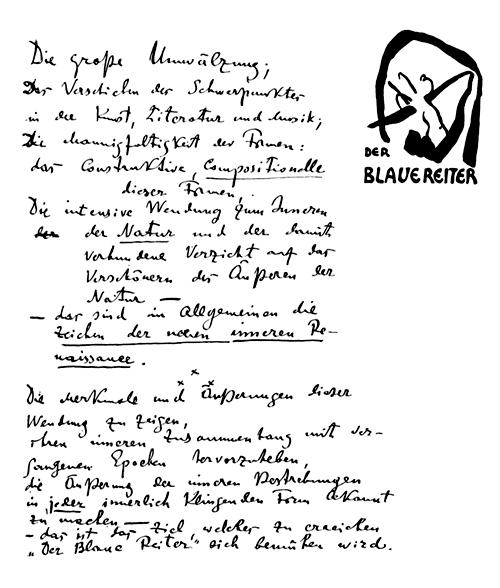 Die große Umwälzung;
Das Verschieben der Schwerpunkte
in der Kunst, Literatur und Musik;
Die Mannigfaltigkeit der Formen:
das Constructive, Compositionelle
dieser Formen;
Die intensive Wendung zum Inneren
der Natur und der damit
verbundene Verzicht auf das
Verschönern des Äußeren der
Natur —
— das sind im allgemeinen die
Zeichen der neuen inneren Re-
naissance.
× × ×
Die Merkmale und Äußerungen dieser
Wendung zu zeigen,
ihren inneren Zusammenhang mit ver-
gangenen Epochen hervorzuheben,
die Äußerung der inneren Bestrebungen
in jeder innerlich klingenden Form bekannt
zu machen —
– das ist das Ziel, welches zu erreichen
„Der Blaue Reiter“ sich bemühen wird.
DER
BLAUE REITER